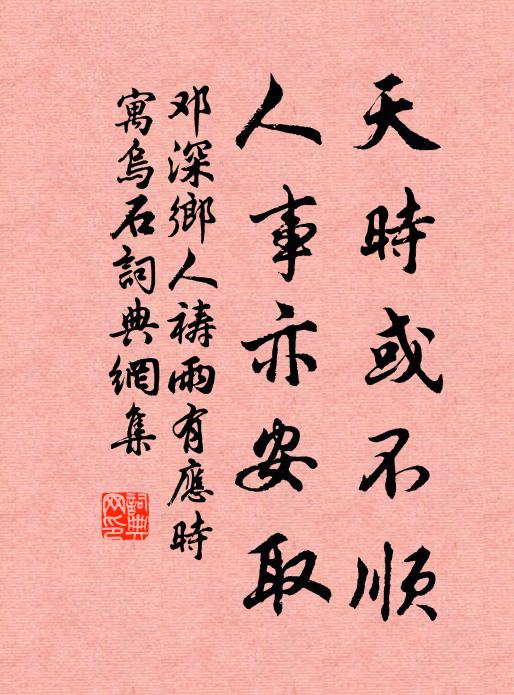 天時或不順
人事亦安取
邓深鄉人祷雨有應時
寓烏石詞典網集
詞典网印